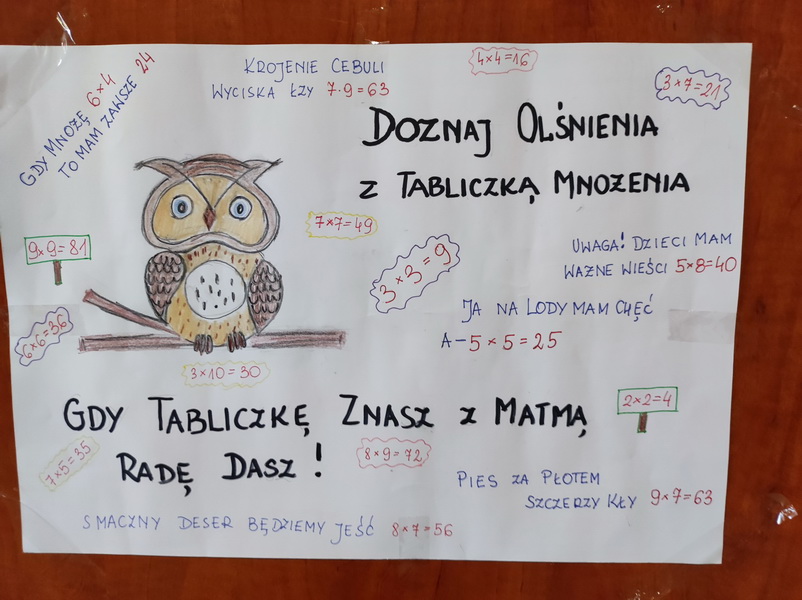 GDY MNOŻĘ 6×4
TO MAM ZAWSZE 24
KROJENIE CEBULI
WYCISKA ŁZY 7·9=63
4×4=16
3×7=21
DOZNAJ OLŚNIENIA
Z TABLICZKĄ MNOŻENIA
7×7=49
9×9=81
3×3=9
UWAGA! DZIECI MAM
WAŻNE WIEŚCI 5×8=40
JA NA LODY MAM CHĘĆ
A-5×5=25
6×6=36
3×10=30
GDY TABLICZKĘ ZNASZ Z MATMĄ
RADĘ DASZ!
2×2=4
7×5=35
8×9=72
PIES ZA PŁOTEM
SZCZERZY KŁY 9×7=63
SMACZNY DESER BĘDZIEMY JEŚĆ 8×7=56